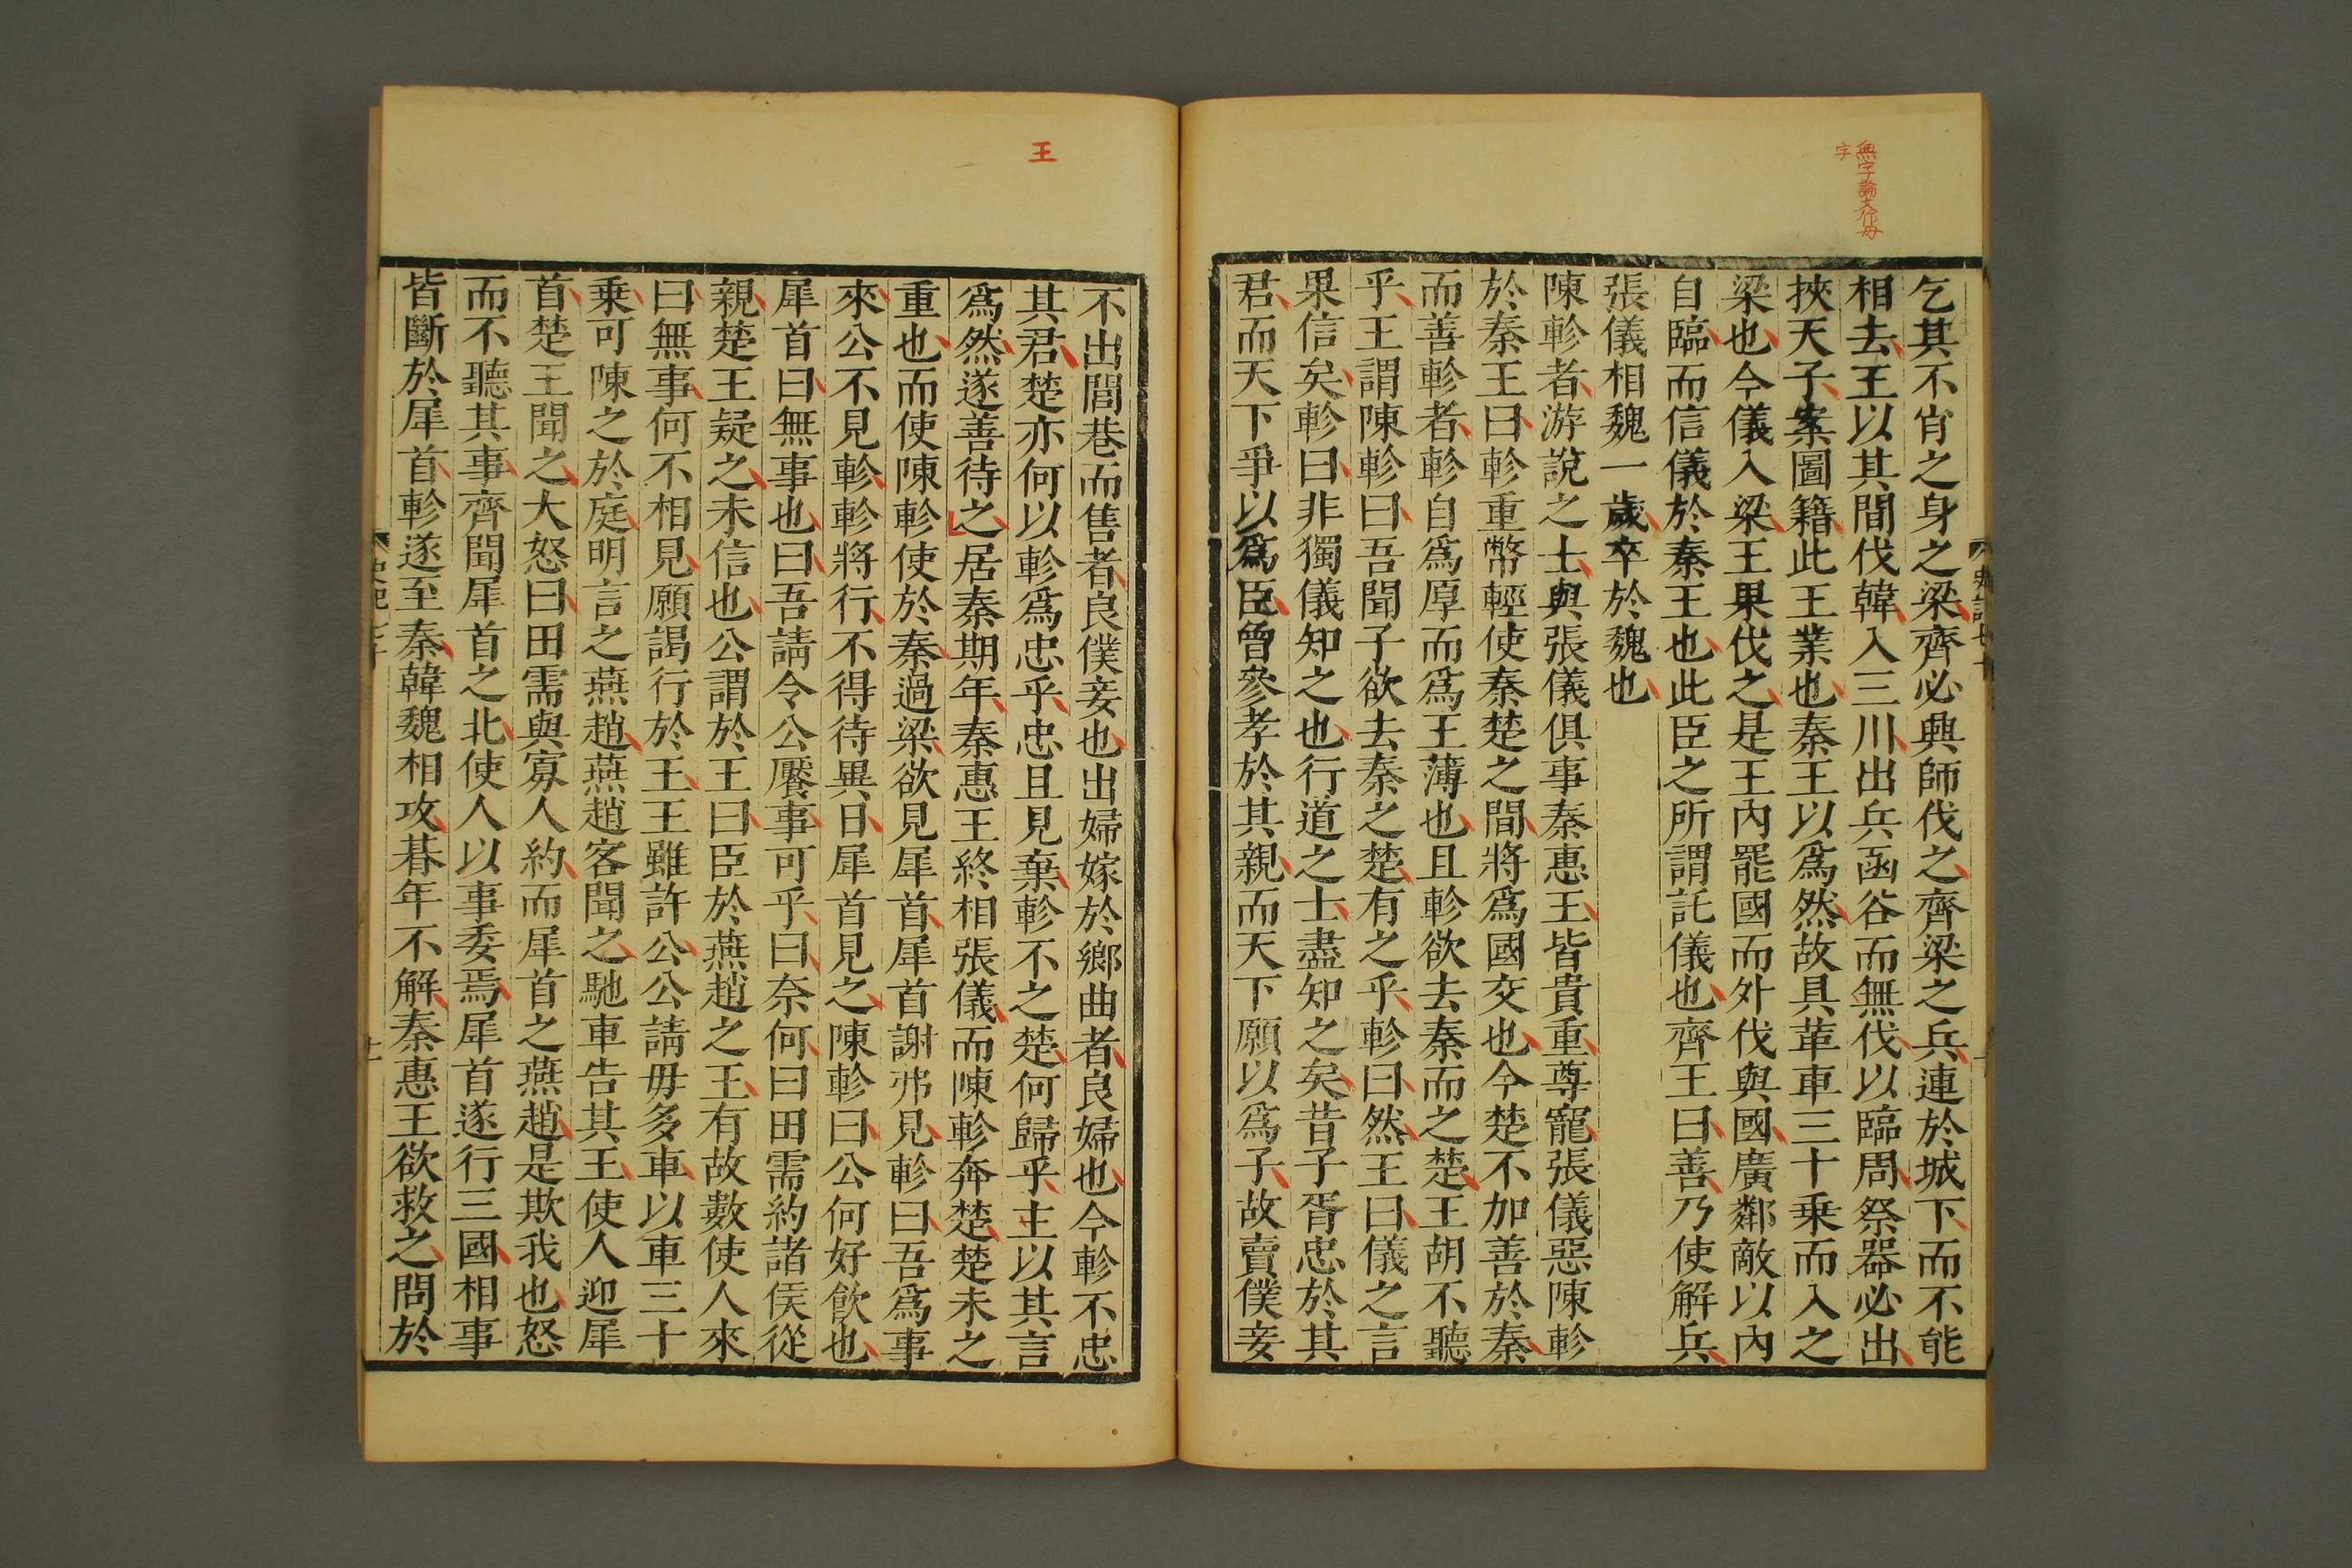 無字論文作毋
字
乞其不肖之身之梁齊必興師伐之齊梁之兵連於城下而不能
相去王以其間伐韓入三川出兵函谷而無伐以臨周祭器必出
挾天子案圖籍此王業也秦王以爲然故具革車三十乗而入之
梁也今儀入梁王果伐之是王內罷國而外伐與國廣鄰敵以內
自臨而信儀於秦王也此臣之所謂託儀也齊王曰善乃使解兵
張儀相魏一歲卒於魏也
陳軫者游說之士與張儀俱事秦惠王皆貴重尊寵張儀惡陳軫
於秦王曰軫重幣輕使秦楚之間將爲國交也今楚不加善於秦
而善軫者軫自爲厚而爲王薄也且軫欲去秦而之楚王胡不聽
乎王謂陳軫曰吾聞子欲去秦之楚有之乎軫曰然王曰儀之言
果信矣軫曰非獨儀知之也行道之士盡知之矣昔子胥忠於其
君而天下爭以爲臣曾參孝於其親而天下願以爲子故賣僕妾
王
不出閭巷而售者良僕妾也出婦嫁於鄉曲者良婦也今軫不忠
其君楚亦何以軫爲忠乎忠且見棄軫不之楚何歸乎主以其言
爲然遂善待之居秦期年秦惠王終相張儀而陳軫奔楚楚未之
重也而使陳軫使於秦過梁欲見犀首犀首謝弗見軫曰吾爲事
來公不見軫軫將行不得待異日犀首見之陳軫曰公何好飲也
犀首曰無事也曰吾請令公饜事可乎曰奈何曰田需約諸侯從
親楚王疑之未信也公謂於王曰臣於燕趙之王有故數使人來
曰無事何不相見願謁行於王王雖許公公請毋多車以車三十
乗可陳之於庭明言之燕趙燕趙客聞之馳車告其王使人迎犀
首楚王聞之大怒曰田需與寡人約而犀首之燕趙是欺我也怒
而不聽其事齊聞犀首之北使人以事委焉犀首遂行三國相事
皆斷於犀首軫遂至秦韓魏相攻朞年不解秦惠王欲救之問於